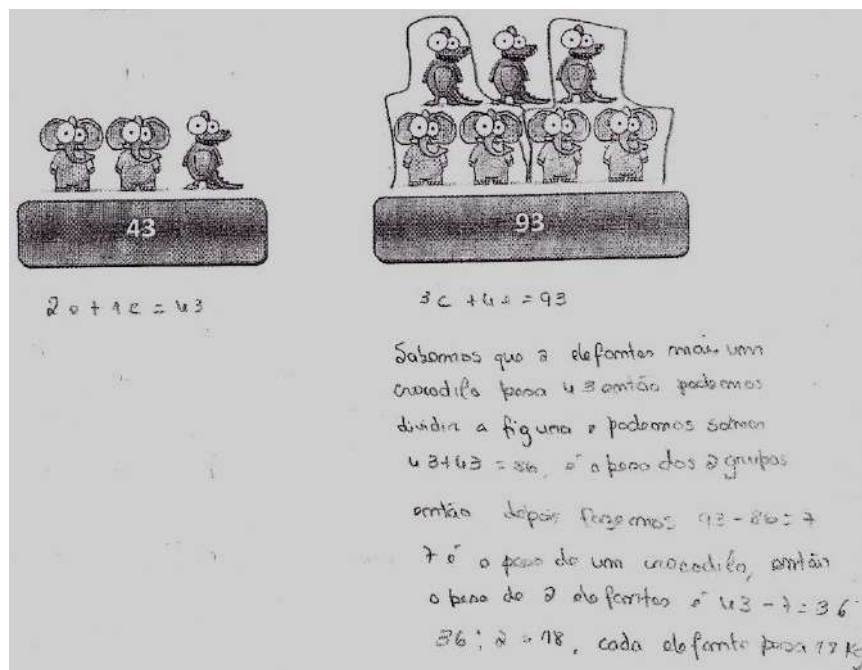 43
93
2e + 1c = 43
3c + 4e = 93
Sabemos que 2 elefantes mais um
crocodilo pesa 43 então podemos
dividir a figura e podemos somar
43+43 = 86, é o peso dos 2 grupos
então depois fazemos 93 - 86 = 7
7 é o peso de um crocodilo, então
o peso de 2 elefantes é 43 - 7 = 36
36 : 2 = 18, cada elefante pesa 18 Kg